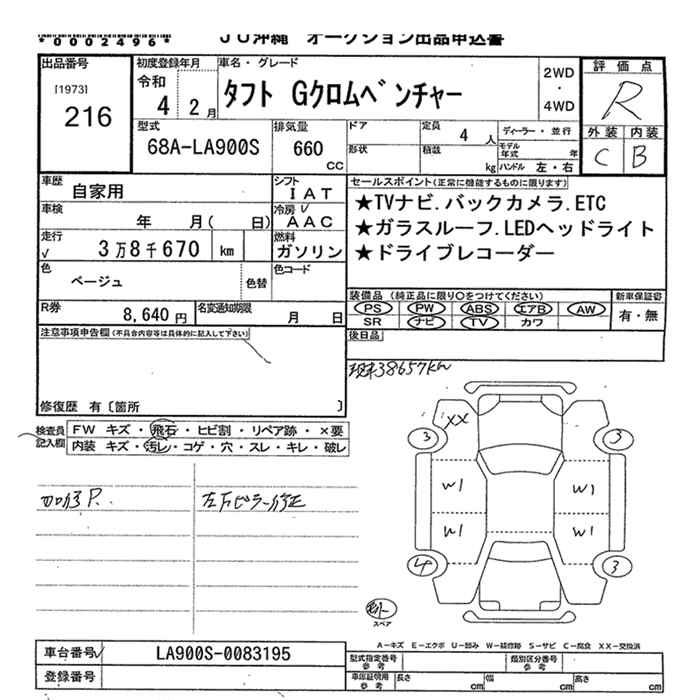 *0002496*
JU沖縄 オークション出品申込書
出品番号
[1973]
216
初度登録年月
令和
4 2月
車名・グレード
タフト Gクロムベンチャー
2WD
・
4WD
評価点
R
外装 内装
C B
型式
68A-LA900S
排気量
660
CC
ドア
形状
定員 4 人
積載 kg
ディーラー・並行
モデル年式 年
ハンドル 左・右
車歴
自家用
シフト
IAT
車検
年 月( 日)
冷房 √
AAC
走行
√ 3万8千670 km
燃料
ガソリン
色
ベージュ
色替
色コード
R券
8,640円
名変通知期限
月 日
セールスポイント(正常に機能するものに限ります)
★TVナビ.バックカメラ.ETC
★ガラスルーフ.LEDヘッドライト
★ドライブレコーダー
装備品(純正品に限り○をつけてください)
PS PW ABS エアB AW
SR ナビ TV カワ
新車保証書
有・無
後日品
注意事項申告欄(不具合内容等は具体的に記入して下さい)
修復歴 有〔箇所 〕
現車38657km
検査員
記入欄
FW キズ・飛石・ヒビ割・リペア跡・×要
内装 キズ・汚レ・コゲ・穴・スレ・キレ・破レ
加修P. 左下ピラー修正
XX
3 3
W1 W1
W1 W1
4 3
スペア
A－キズ E－エクボ U－凹み W－補修跡 S－サビ C－腐食 XX－交換済
車台番号√
LA900S-0083195
登録番号
型式指定番号
参考
類別区分番号
参考
車庫証明用
参考
長さ cm 幅 cm 高さ cm